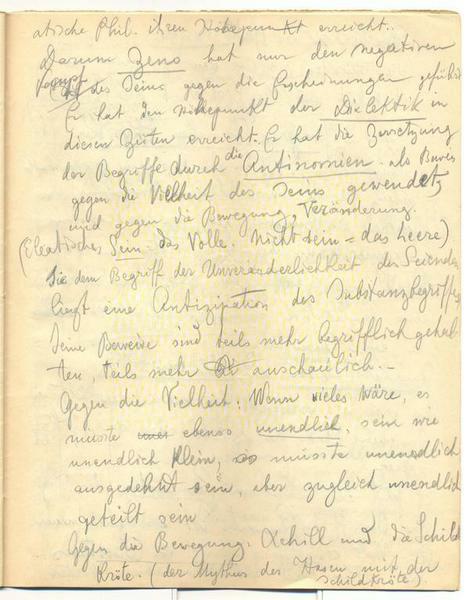 atische Phil. ihren Höhepunkt erreicht..
Darum Zeno hat nur den negativen
Kampf des Seins gegen die Erscheinungen geführt
Er hat den Höhepunkt der Dialektik in
diesen Zeiten erreicht. Er hat die Zersetzung
der Begriffe durch die Antinomien - als Beweis
gegen die Vielheit des Seins gewendet,
und gegen die Bewegung, Veränderung.
(Eleatisches Sein - das Volle. Nichtsein = das Leere)
In dem Begriff der Unveränderlichkeit des Seienden
liegt eine Antizipation des Substanzbegriffes
Seine Beweise sind teils mehr begrifflich gehal
ten, teils mehr anschaulich. -
Gegen die Vielheit: Wenn vieles wäre, es
musste ebenso unendlich sein wie
unendlich klein, es musste unendlich
ausgedehnt sein, aber zugleich unendlich
geteilt sein
Gegen die Bewegung: Achill und die Schild
Kröte. (der Mythus des Hasen mit der
Schildkröte).